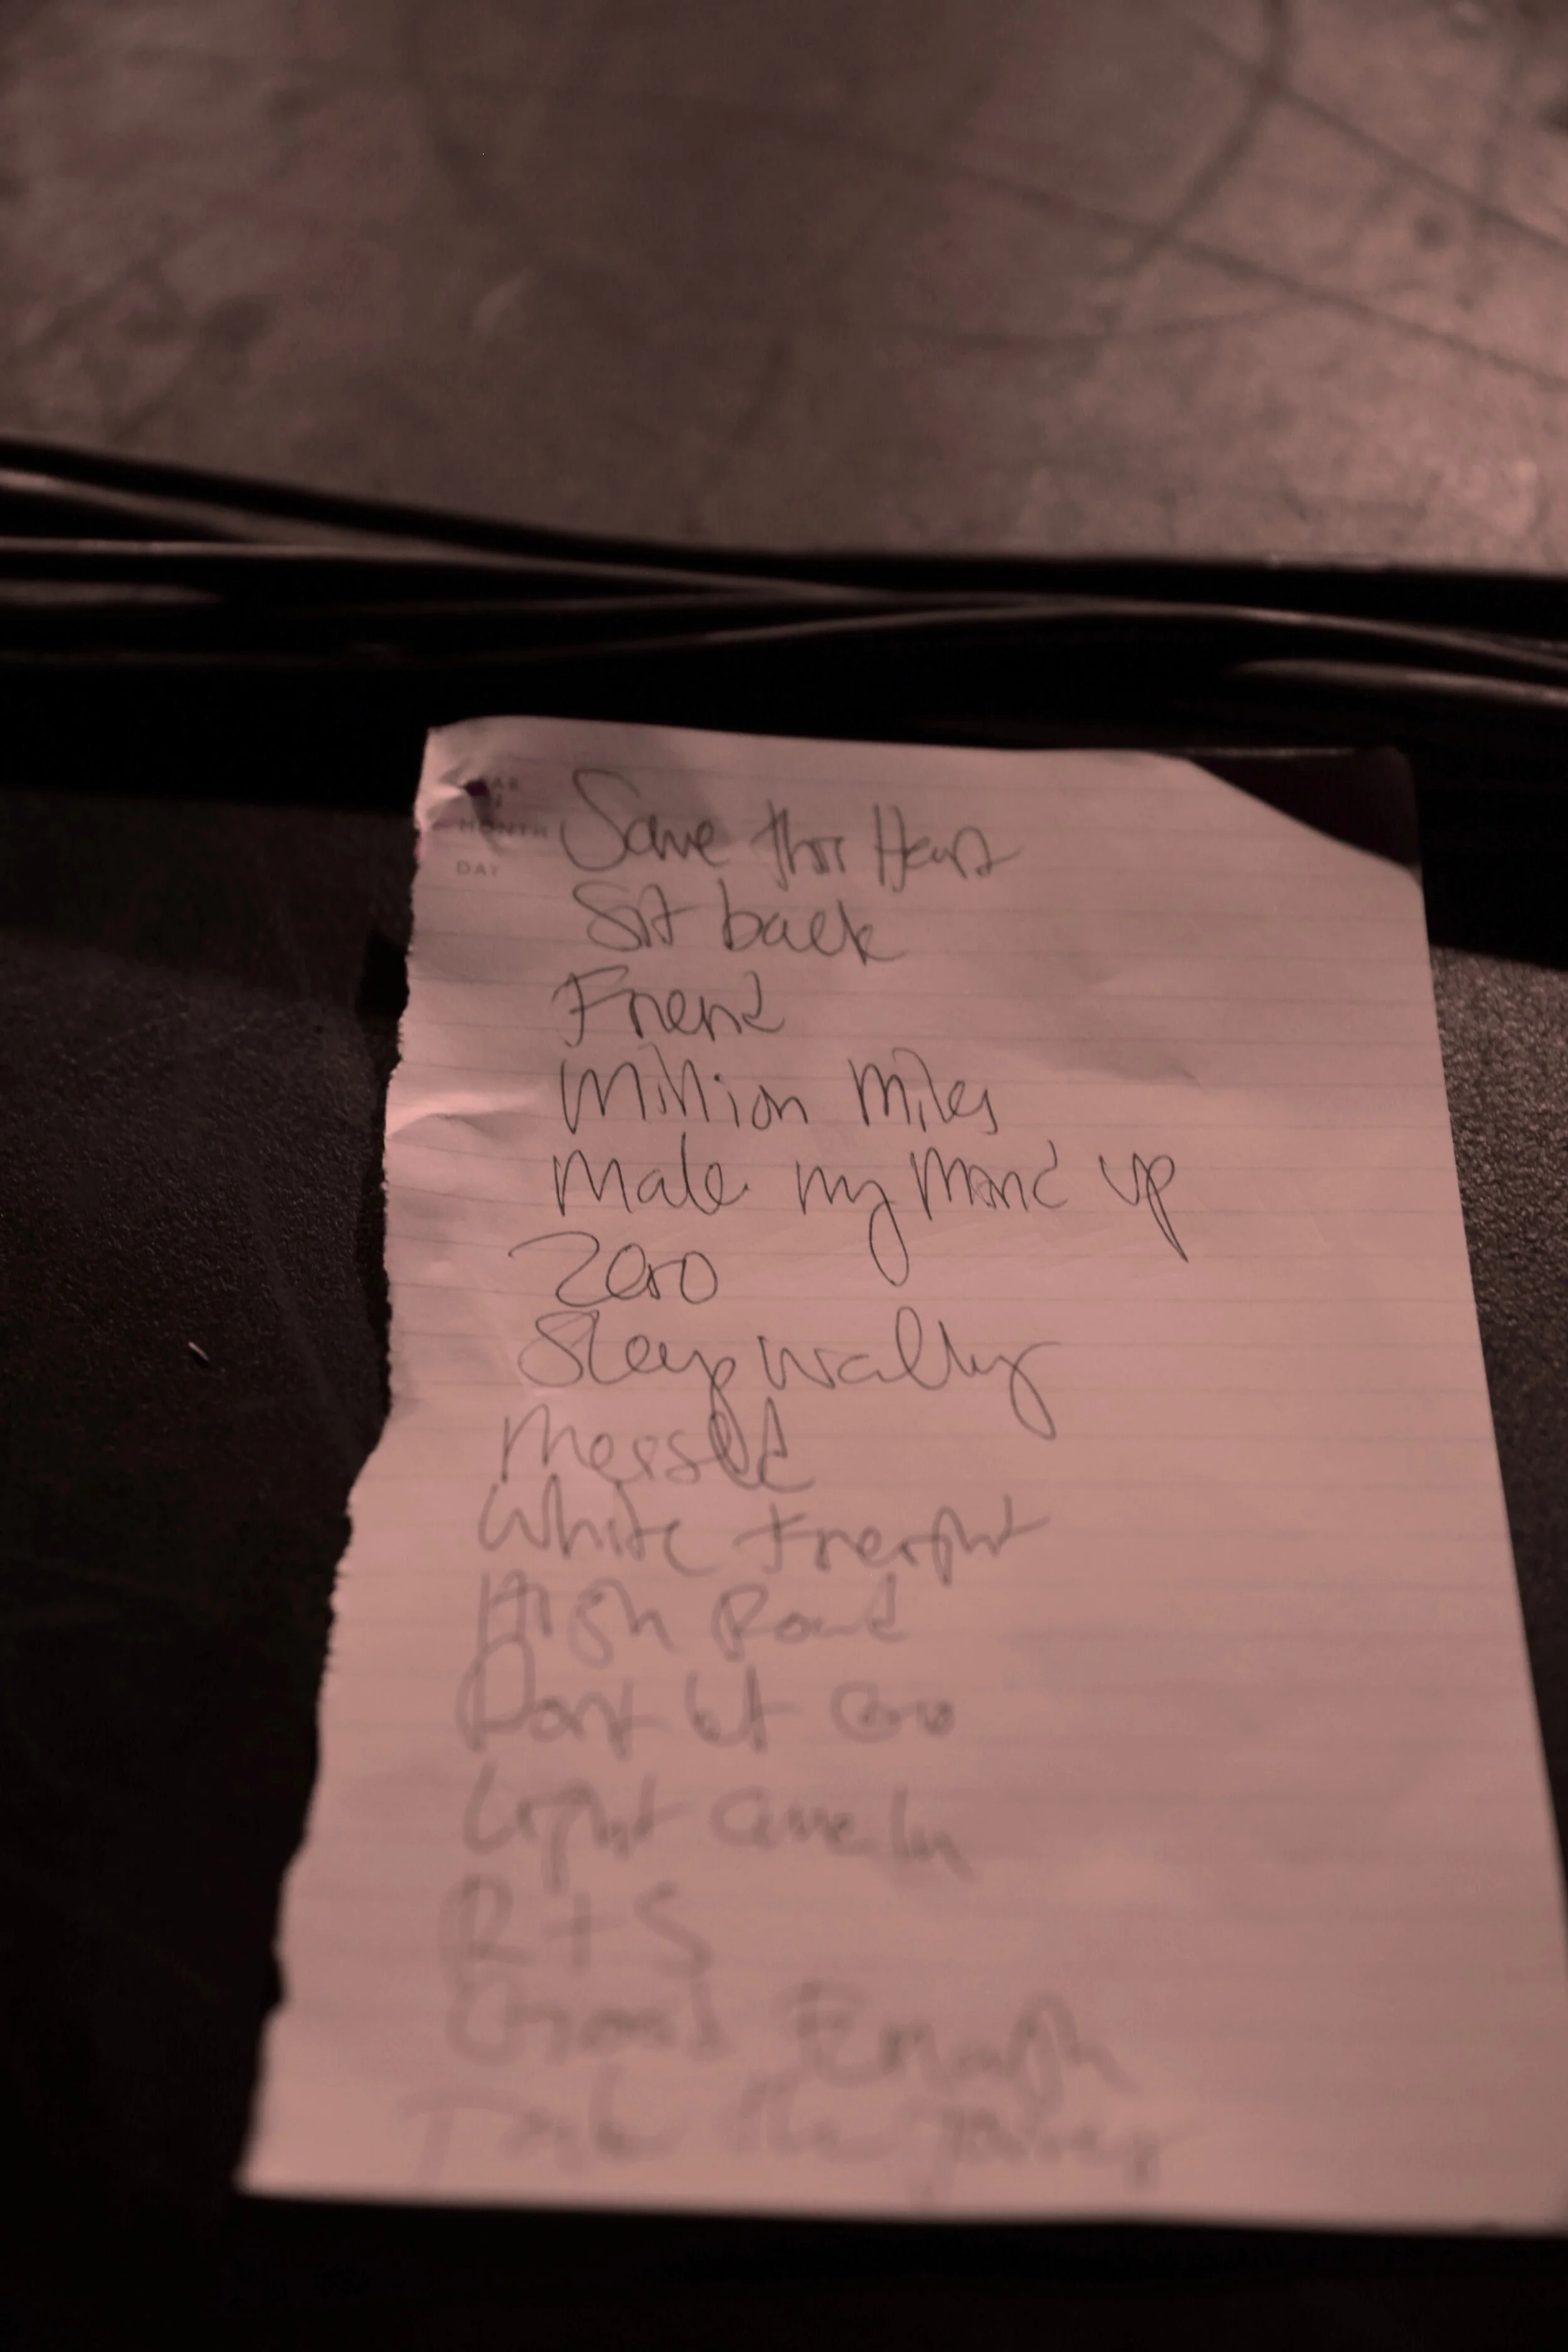 YEAR
MONTH
DAY
Save this Heart
Sit back
Friend
Million Miles
Make my Mind up
Zero
Sleepwalking
Messed
White
High Road
Dont let Go
Light Come In
R + S
Good Enough
Take the